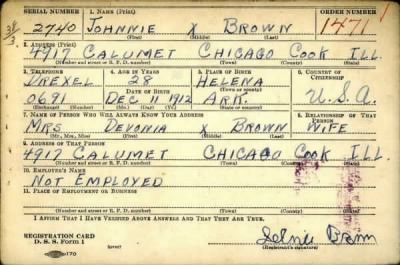 SERIAL NUMBER 1. NAME (Print) ORDER NUMBER
2740 JOHNNIE X BROWN 1471
(First) (Middle) (Last)
2. ADDRESS (Print)
4917 CALUMET CHICAGO COOK ILL.
(Number and street or R. F. D. number) (Town) (County) (State)
3. TELEPHONE 4. AGE IN YEARS 5. PLACE OF BIRTH 6. COUNTRY OF CITIZENSHIP
DREXEL 28 HELENA
DATE OF BIRTH (Town or county)
0691 DEC 1912 ARK. U.S.A.
(Exchange) (Number) (Mo.) (Day) (Yr.) (State or country)
7. NAME OF PERSON WHO WILL ALWAYS KNOW YOUR ADDRESS 8. RELATIONSHIP OF THAT PERSON
MRS DEVONIA X BROWN WIFE
(Mr., Mrs., Miss) (First) (Middle) (Last)
9. ADDRESS OF THAT PERSON
4917 CALUMET CHICAGO COOK ILL.
(Number and street or R. F. D. number) (Town) (County) (State)
10. EMPLOYER'S NAME
NOT EMPLOYED
11. PLACE OF EMPLOYMENT OR BUSINESS
(Number and street or R. F. D. number) (Town) (County) (State)
I AFFIRM THAT I HAVE VERIFIED ABOVE ANSWERS AND THAT THEY ARE TRUE.
REGISTRATION CARD
D. S. S. Form 1 (over) (Registrant's signature)